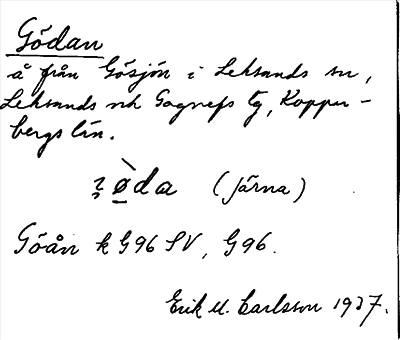 Gödan
å från Gösjön i Leksands sn,
Leksands och Gagnefs tg, Koppar-
bergs län.
(Järna)
Göån k G96 SV, G96.
Erik M. Carlsson 1937.